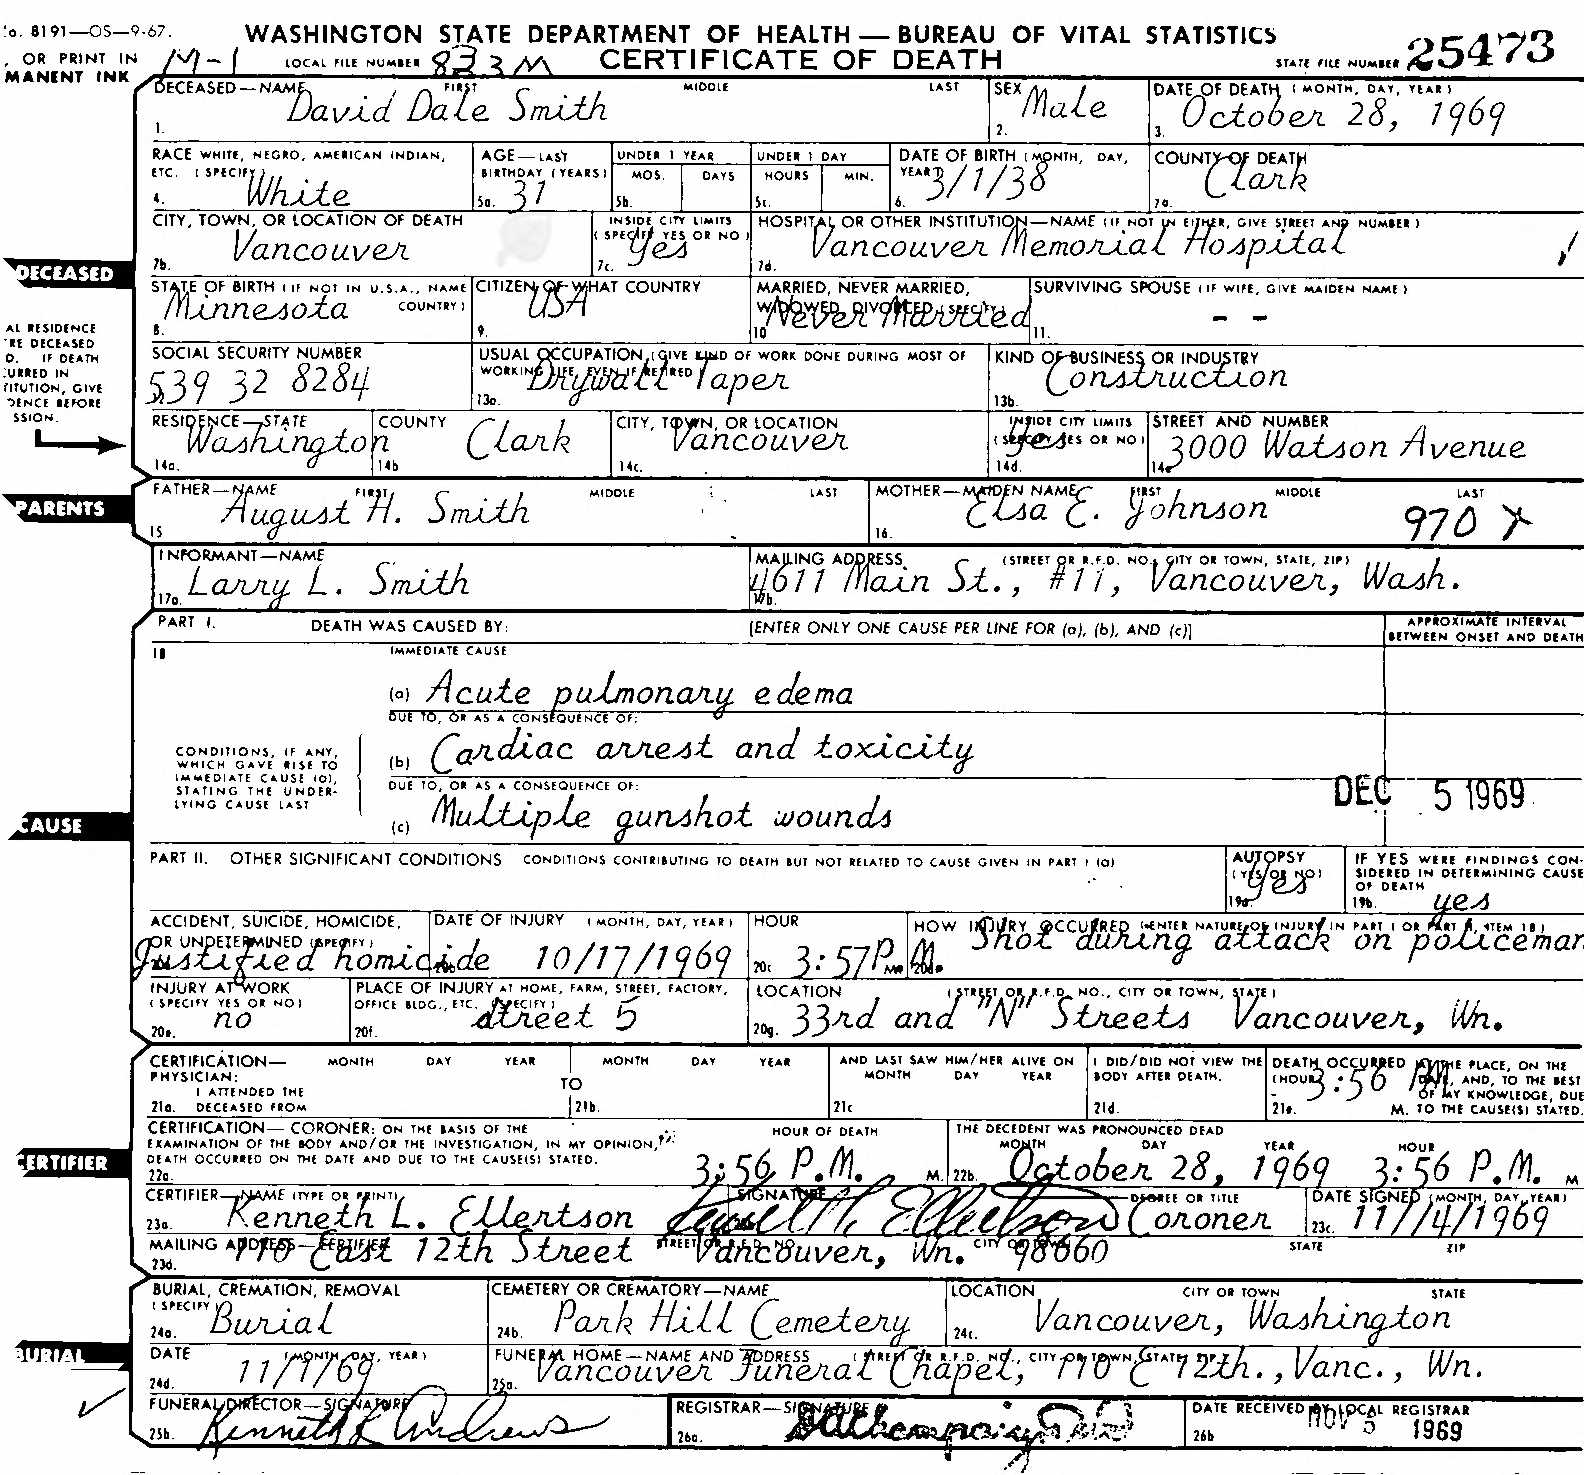 o. 8191—OS—9-67.
WASHINGTON STATE DEPARTMENT OF HEALTH — BUREAU OF VITAL STATISTICS
, OR PRINT IN
MANENT INK
M-1
LOCAL FILE NUMBER 833M
CERTIFICATE OF DEATH
STATE FILE NUMBER 25473
DECEASED—NAME FIRST MIDDLE LAST
1. David Dale Smith
SEX
2. Male
DATE OF DEATH (MONTH, DAY, YEAR)
3. October 28, 1969
RACE WHITE, NEGRO, AMERICAN INDIAN,
ETC. (SPECIFY)
4. White
AGE—LAST
BIRTHDAY (YEARS)
5a. 31
UNDER 1 YEAR
MOS. DAYS
5b.
UNDER 1 DAY
HOURS MIN.
5c.
DATE OF BIRTH (MONTH, DAY,
YEAR)
6. 3/1/38
COUNTY OF DEATH
7a. Clark
CITY, TOWN, OR LOCATION OF DEATH
7b. Vancouver
INSIDE CITY LIMITS
(SPECIFY YES OR NO)
7c. Yes
HOSPITAL OR OTHER INSTITUTION—NAME (IF NOT IN EITHER, GIVE STREET AND NUMBER)
7d. Vancouver Memorial Hospital
DECEASED
STATE OF BIRTH (IF NOT IN U.S.A., NAME
COUNTRY)
8. Minnesota
CITIZEN OF WHAT COUNTRY
9. USA
MARRIED, NEVER MARRIED,
WIDOWED, DIVORCED (SPECIFY)
10 Never Married
SURVIVING SPOUSE (IF WIFE, GIVE MAIDEN NAME)
11. - -
AL RESIDENCE
RE DECEASED
D. IF DEATH
URRED IN
TITUTION, GIVE
DENCE BEFORE
SSION.
SOCIAL SECURITY NUMBER
539 32 8284
USUAL OCCUPATION (GIVE KIND OF WORK DONE DURING MOST OF
WORKING LIFE, EVEN IF RETIRED)
13a. Drywall Taper
KIND OF BUSINESS OR INDUSTRY
13b. Construction
RESIDENCE—STATE
14a. Washington
COUNTY
14b Clark
CITY, TOWN, OR LOCATION
14c. Vancouver
INSIDE CITY LIMITS
(SPECIFY YES OR NO)
14d. Yes
STREET AND NUMBER
14e 3000 Watson Avenue
PARENTS
FATHER—NAME FIRST MIDDLE LAST
15 August H. Smith
MOTHER—MAIDEN NAME FIRST MIDDLE LAST
16. Elsa E. Johnson
970 X
INFORMANT—NAME
17a. Larry L. Smith
MAILING ADDRESS (STREET OR R.F.D. NO., CITY OR TOWN, STATE, ZIP)
17b. 4611 Main St., #11, Vancouver, Wash.
PART I. DEATH WAS CAUSED BY: [ENTER ONLY ONE CAUSE PER LINE FOR (a), (b), AND (c)]
APPROXIMATE INTERVAL
BETWEEN ONSET AND DEATH
18 IMMEDIATE CAUSE
(a) Acute pulmonary edema
DUE TO, OR AS A CONSEQUENCE OF:
CONDITIONS, IF ANY,
WHICH GAVE RISE TO
IMMEDIATE CAUSE (a),
STATING THE UNDER-
LYING CAUSE LAST
(b) Cardiac arrest and toxicity
DUE TO, OR AS A CONSEQUENCE OF:
(c) Multiple gunshot wounds
DEC 5 1969
CAUSE
PART II. OTHER SIGNIFICANT CONDITIONS CONDITIONS CONTRIBUTING TO DEATH BUT NOT RELATED TO CAUSE GIVEN IN PART I (a)
AUTOPSY
(YES OR NO)
19a. Yes
IF YES WERE FINDINGS CON-
SIDERED IN DETERMINING CAUSE
OF DEATH
19b. yes
ACCIDENT, SUICIDE, HOMICIDE,
OR UNDETERMINED (SPECIFY)
Justified homicide
DATE OF INJURY (MONTH, DAY, YEAR)
20b 10/17/1969
HOUR
20c 3:57P.M.
HOW INJURY OCCURRED (ENTER NATURE OF INJURY IN PART I OR PART II, ITEM 18)
20d. Shot during attack on policeman
INJURY AT WORK
(SPECIFY YES OR NO)
20e. no
PLACE OF INJURY AT HOME, FARM, STREET, FACTORY,
OFFICE BLDG., ETC. (SPECIFY)
20f. street 5
LOCATION (STREET OR R.F.D. NO., CITY OR TOWN, STATE)
20g. 33rd and "N" Streets Vancouver, Wn.
CERTIFICATION— MONTH DAY YEAR
PHYSICIAN:
I ATTENDED THE
21a. DECEASED FROM
TO
MONTH DAY YEAR
21b.
AND LAST SAW HIM/HER ALIVE ON
MONTH DAY YEAR
21c
I DID/DID NOT VIEW THE
BODY AFTER DEATH.
21d.
DEATH OCCURRED AT THE PLACE, ON THE
(HOUR) 3:56 PM DATE, AND, TO THE BEST
OF MY KNOWLEDGE, DUE
21e. M. TO THE CAUSE(S) STATED.
CERTIFIER
CERTIFICATION— CORONER: ON THE BASIS OF THE
EXAMINATION OF THE BODY AND/OR THE INVESTIGATION, IN MY OPINION,
DEATH OCCURRED ON THE DATE AND DUE TO THE CAUSE(S) STATED.
22a.
HOUR OF DEATH
3:56 P.M. M.
THE DECEDENT WAS PRONOUNCED DEAD
MONTH DAY YEAR HOUR
22b. October 28, 1969 3:56 P.M. M
CERTIFIER—NAME (TYPE OR PRINT)
23a. Kenneth L. Ellertson
SIGNATURE
DEGREE OR TITLE
Coroner
DATE SIGNED (MONTH, DAY, YEAR)
23c. 11/4/1969
MAILING ADDRESS—CERTIFIER STREET OR R.F.D. NO. CITY OR TOWN STATE ZIP
23d. 110 East 12th Street Vancouver, Wn. 98660
BURIAL
BURIAL, CREMATION, REMOVAL
(SPECIFY)
24a. Burial
CEMETERY OR CREMATORY—NAME
24b. Park Hill Cemetery
LOCATION CITY OR TOWN STATE
24c. Vancouver, Washington
DATE (MONTH, DAY, YEAR)
24d. 11/1/69
FUNERAL HOME—NAME AND ADDRESS (STREET OR R.F.D. NO., CITY OR TOWN, STATE, ZIP)
25a. Vancouver Funeral Chapel, 110 E 12th., Vanc., Wn.
FUNERAL DIRECTOR—SIGNATURE
25b. Kenneth L Andrews
REGISTRAR—SIGNATURE
26a.
DATE RECEIVED BY LOCAL REGISTRAR
26b NOV 5 1969